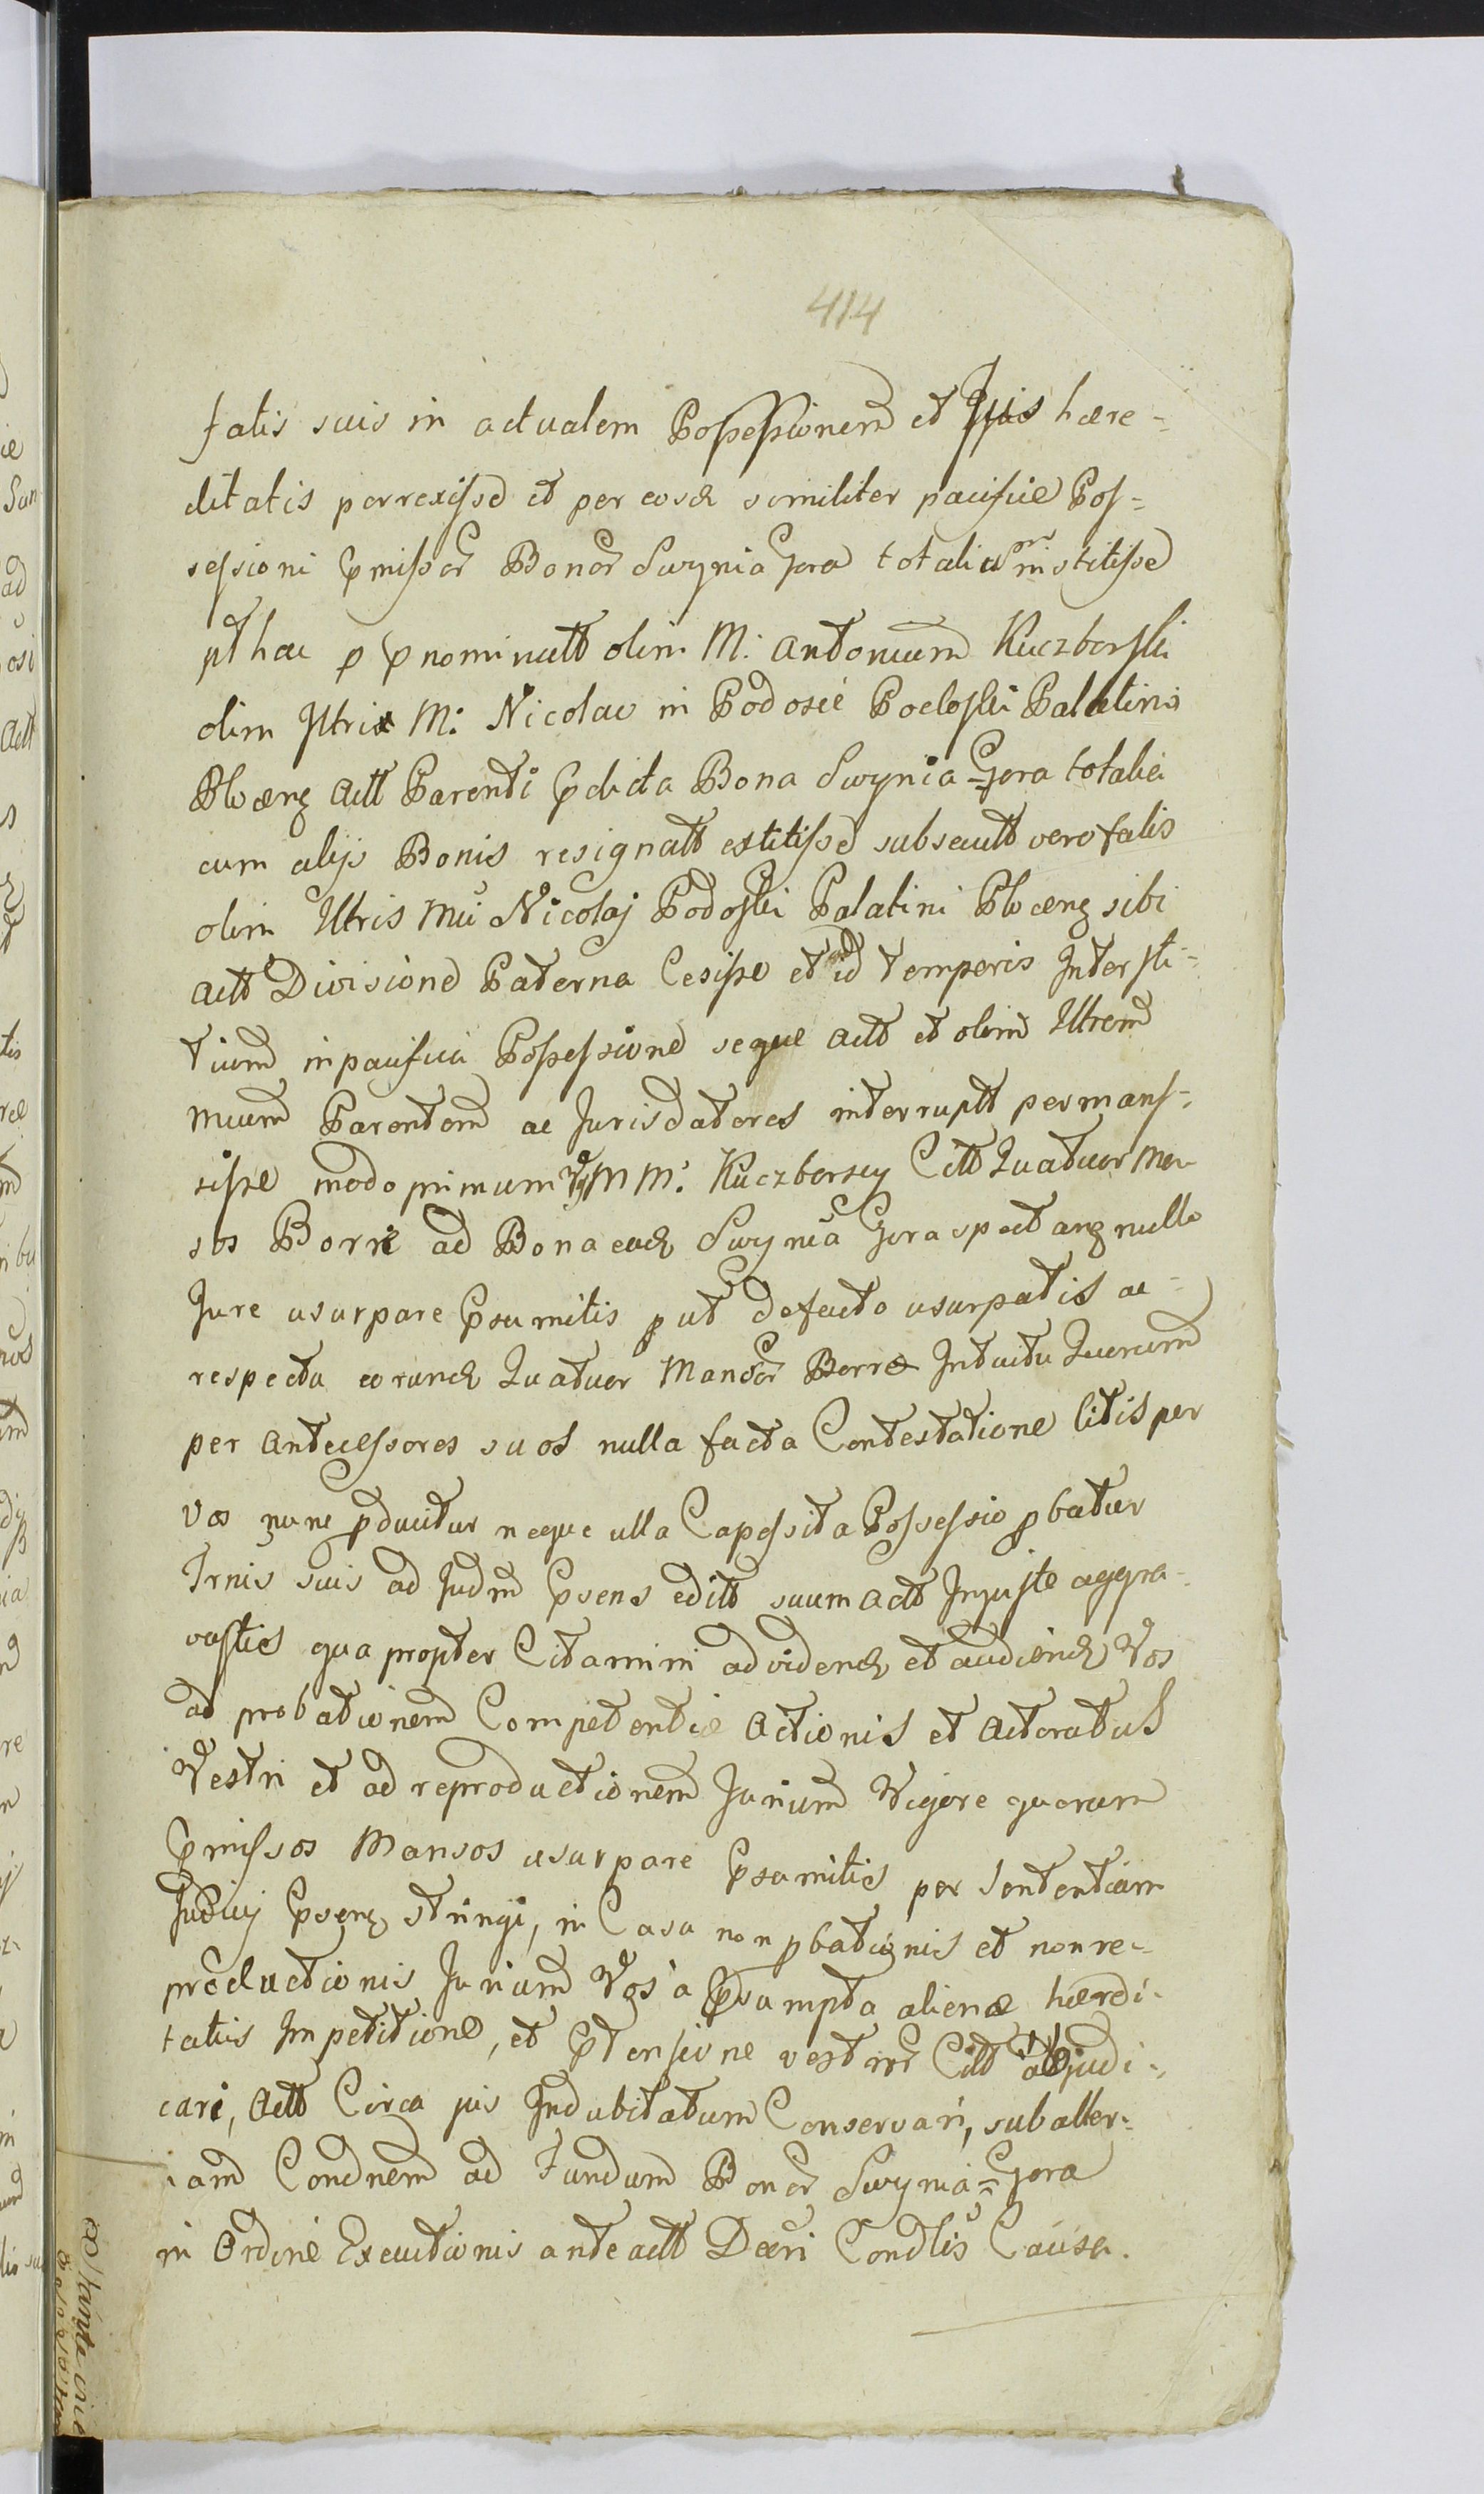 414
fatis suis in actualem Possessionem et Jus hære-
ditatis perrexisse et per eosd similiter pacifice Pos-
sessioni Pmissor Bonor Swynia Gora totalium institisse
pt hac p Pnominatt olim M: Antonium Kuczborski
olim Illtri M: Nicolao in Podosie Podoski Palatino
Plocens Actt Parenti Pdicta Bona Swynia=Gora totalia
cum alijs Bonis resignatt extitisse subsecutt vero fatis
olim Illtris Mci Nicolaj Podoski Palatini Plocens sibi
Actt Divisione Paterna Cesisse et id temporis Intersti-
tium in pacifica Possessione seque Actt et olim Illtrem
Mcum Parentem ac Jurisdatores interruptt permans-
sisse modo primum Vos MM: Kuczborscy Citt Quatuor Man
sos Borræ ad Bona ead Swynia Gora spectans nullo
Jure usurpare Psumitis put defacto usurpatis ac
respectu eorund Quatuor Mansor Borræ Intuitu Quorum
per Antecessores suos nulla facta Contestatione litis per
Vos nunc pducitur neque ulla Capessita Possessio pbatur
Trnis suis ad Judm Psens editt suum Actt Injuste aggra-
vastis qua propter Citamini ad vidend et audiend Vos
ad probationem Competentiæ Actionis et Actoratus
Vestri et ad reproductionem Jurium Vigore quorum
Pmissos Mansos usurpare Psumitis per Sententiam
Judicij Psens stringi, in Casu non pbationis et non re-
productionis Jurium Vos a Psumpta alienæ hæredi-
tatis Impetitione, et Ptensione vestrar Citt abjudi-
cari, Actt Circa jus Indubitatum Conservari, sub alter-
iam Condnem ad Fundum Bonor Swynia=Gora
in Ordine Executionis ante actt Decri Condlis Causa.